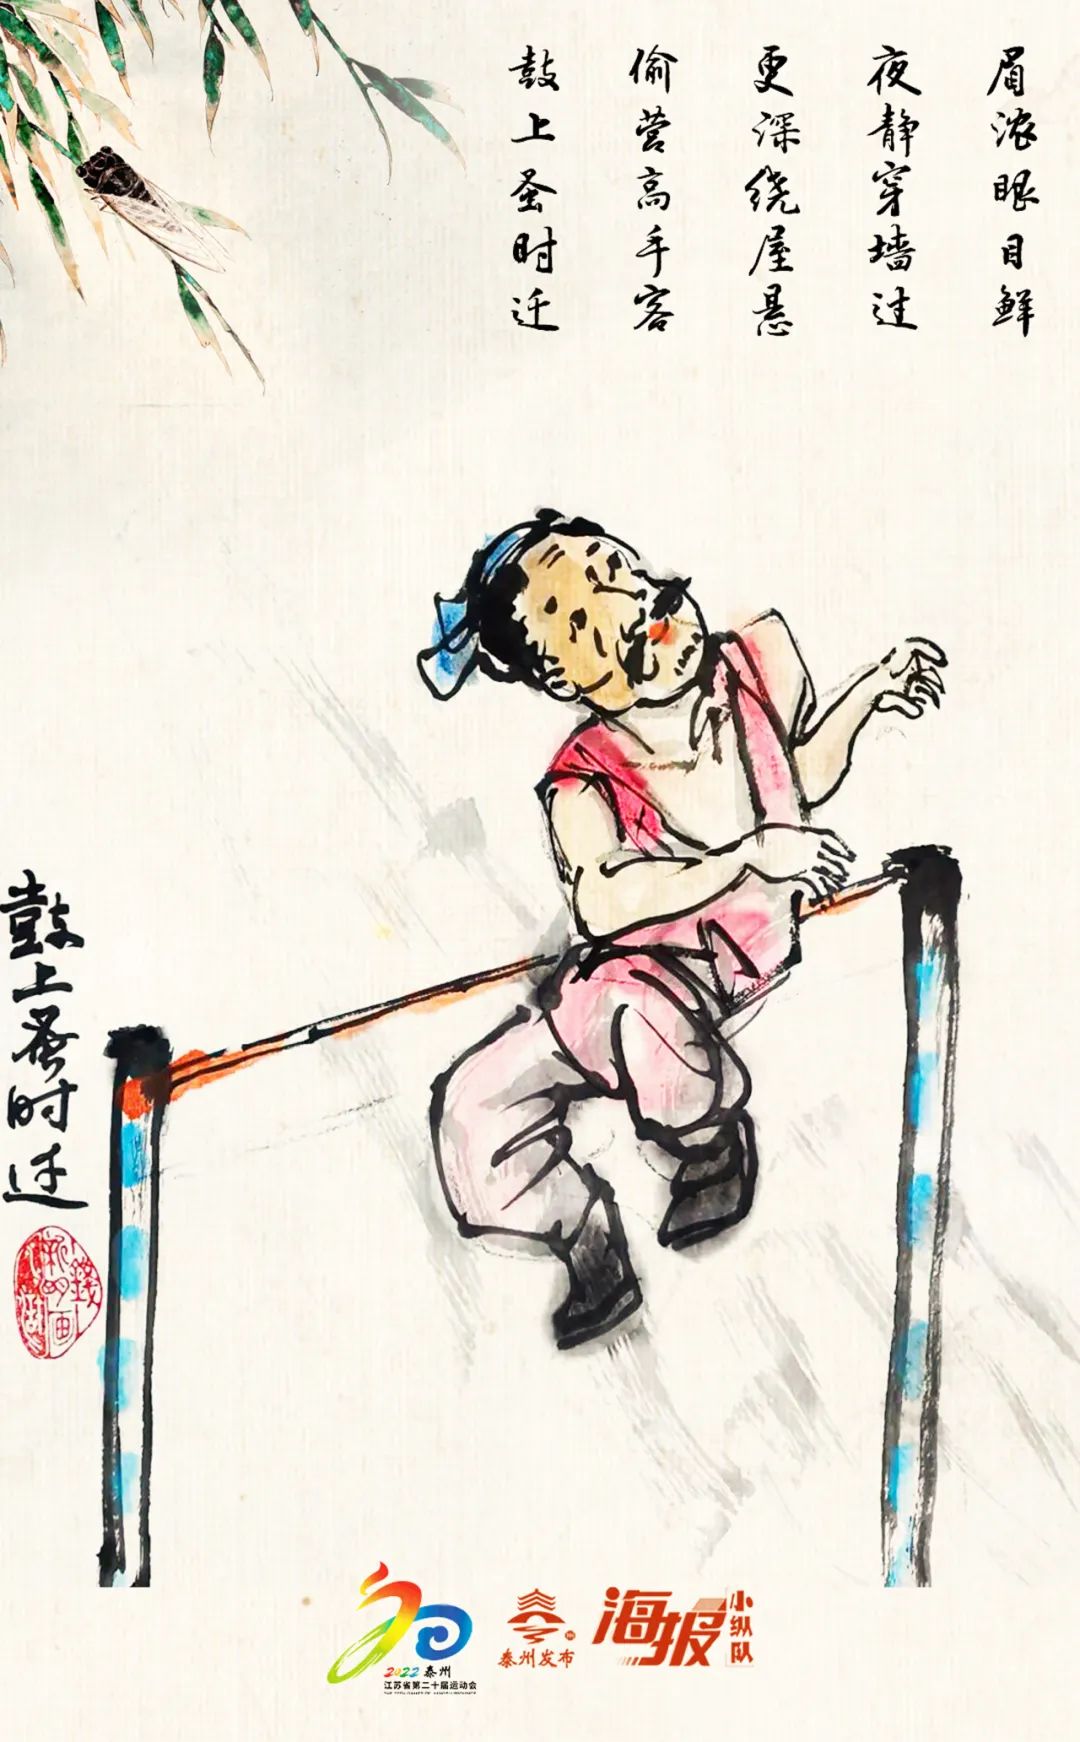 眉浓眼目鲜
夜静穿墙过
更深绕屋悬
偷营高手客
鼓上蚤时迁
鼓上蚤时迁
2022 泰州
江苏省第二十届运动会
泰州发布
海报
小纵队